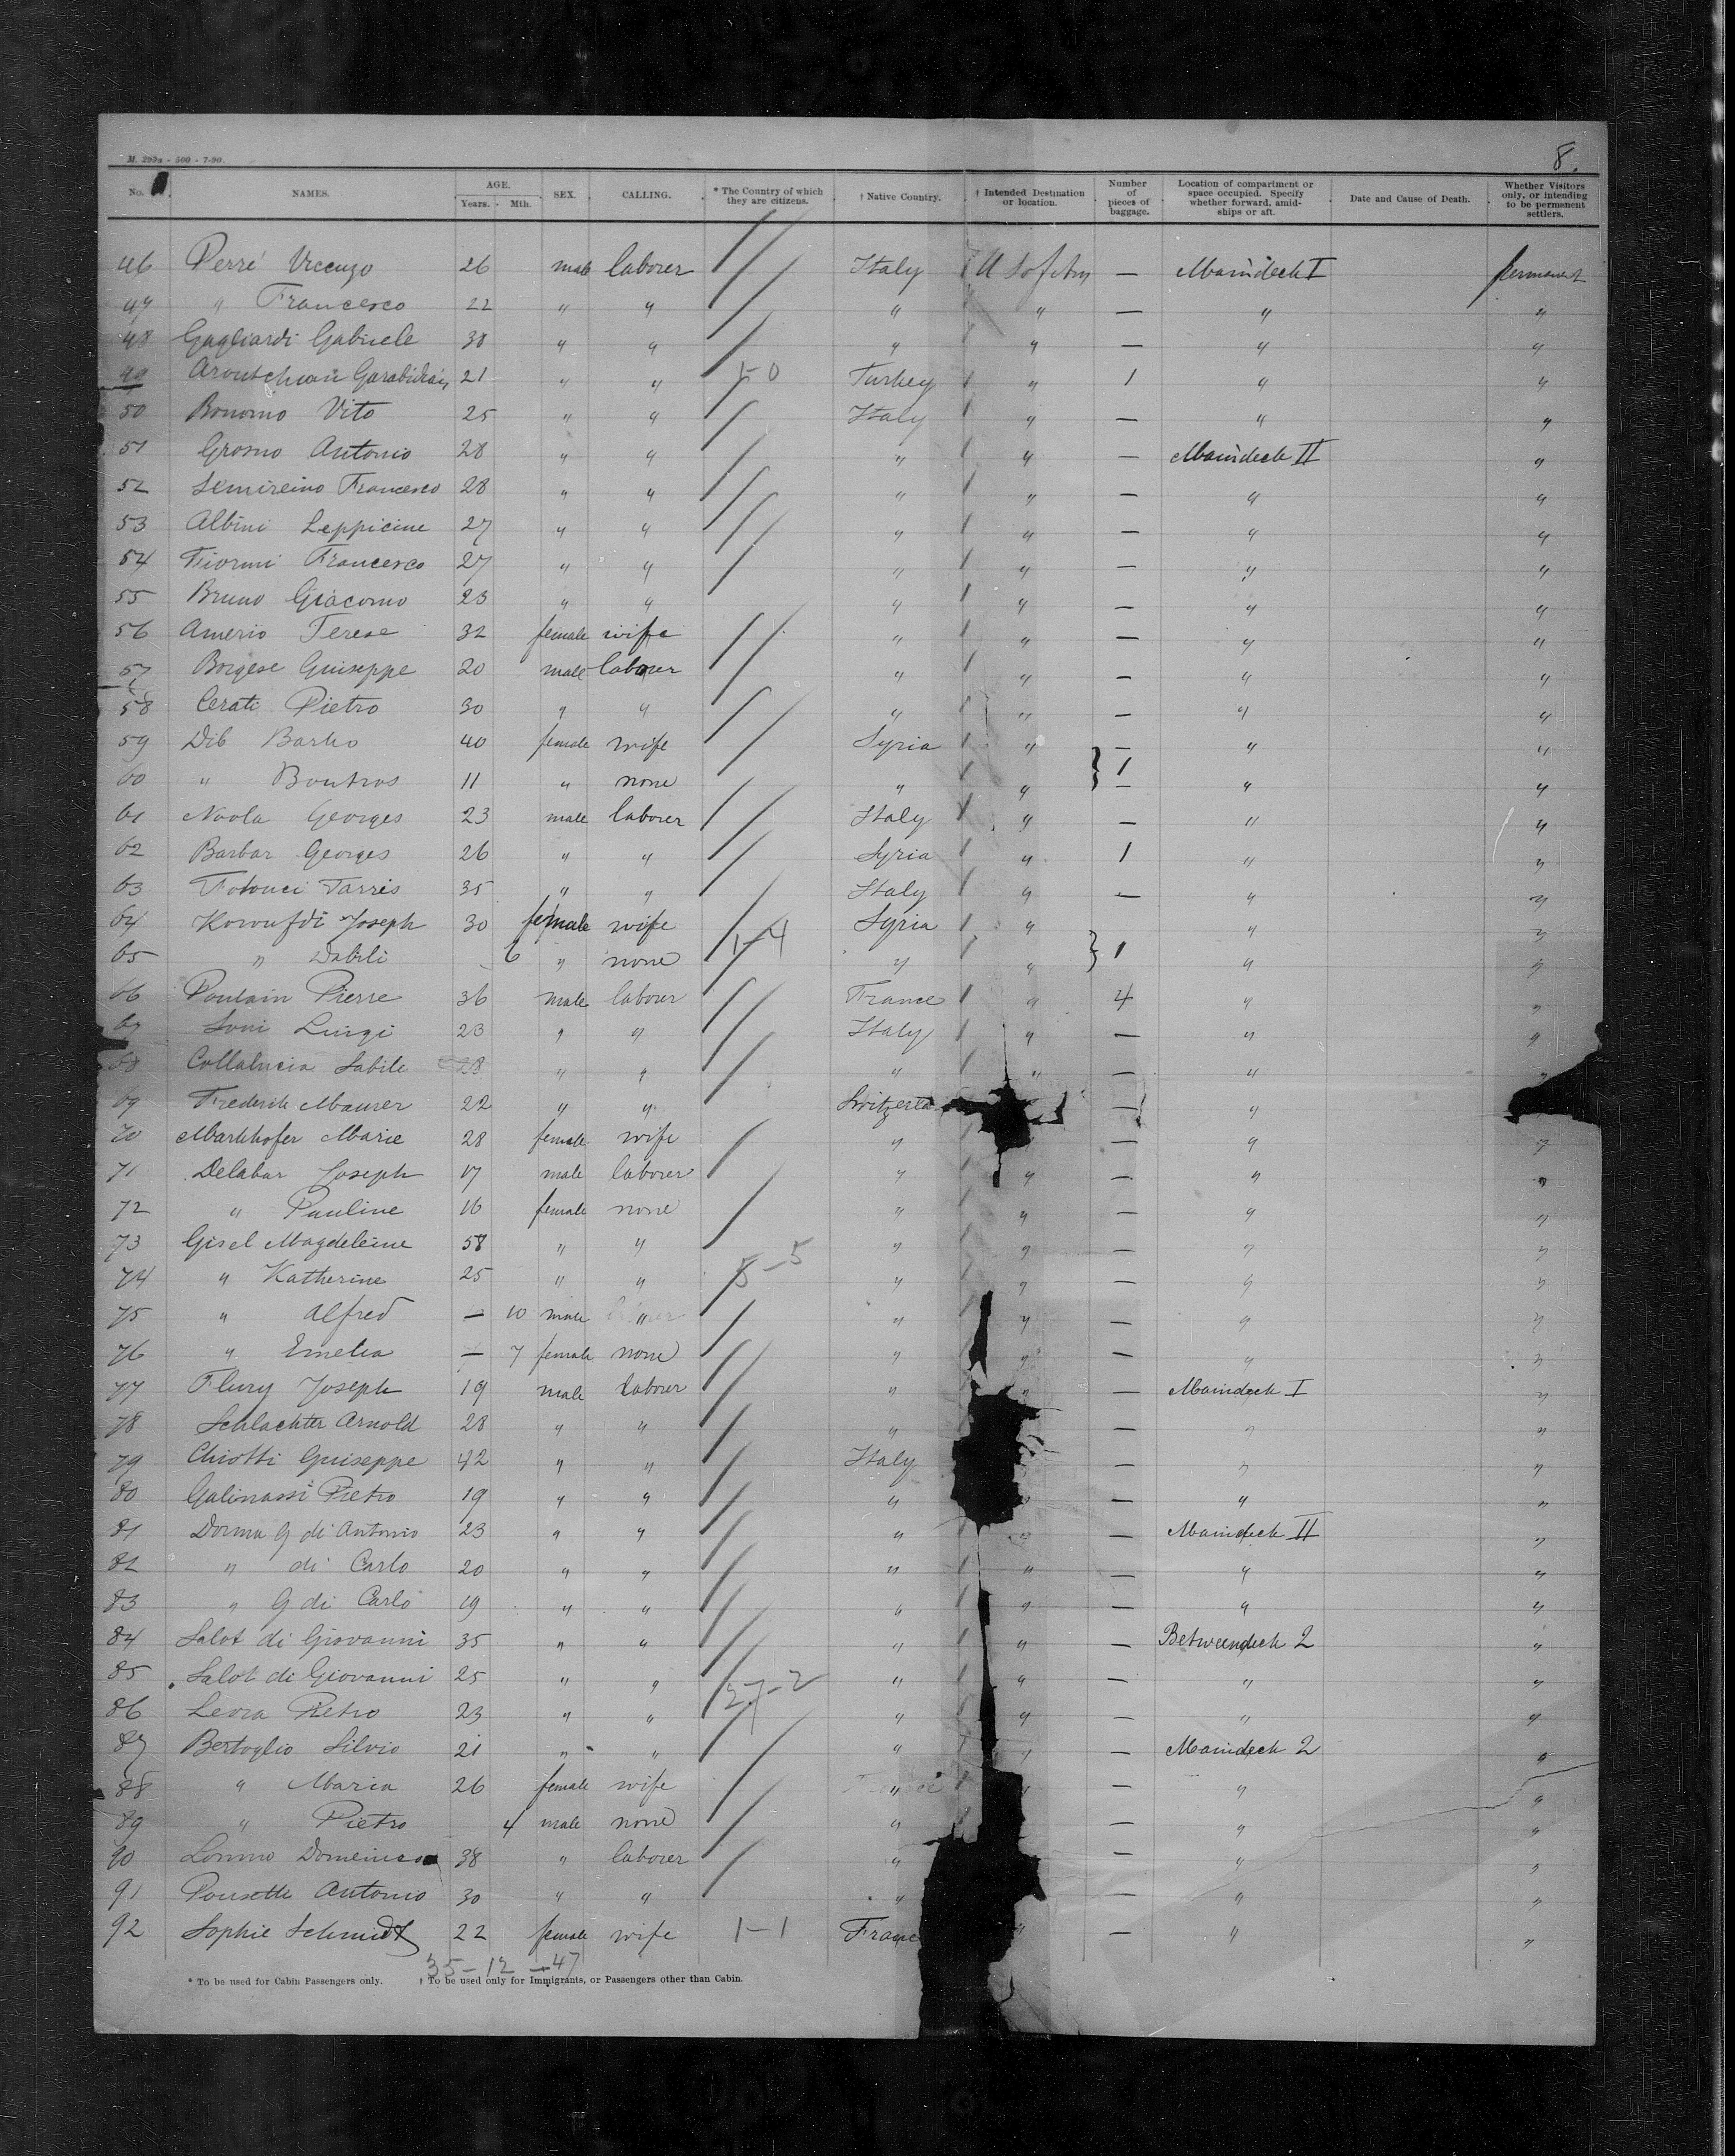 M. 299a - 500 - 7-90.
8.
No. NAMES. AGE. Years. Mth. SEX. CALLING. * The Country of which they are citizens. † Native Country. † Intended Destination or location. Number of pieces of baggage. Location of compartment or space occupied. Specify whether forward, amidships or aft. Date and Cause of Death. Whether Visitors only, or intending to be permanent settlers.
46 Perré Vicenzo 26 male laborer Italy U S of Am — Maindeck I permanent
47 " Francesco 22 " " " " — " "
48 Gagliardi Gabriele 38 " " " " — " "
49 Garabidian 21 " " 1-0 Turkey " 1 " "
50 Bonomo Vito 25 " " Italy " — " "
51 Grosno Antonio 28 " " " " — Maindeck II "
52 Francesco 28 " " " " — " "
53 Albini Leppicine 27 " " " " — " "
54 Fiorini Francesco 27 " " " " — " "
55 Bruno Giacomo 23 " " " " — " "
56 Amerio Terese 32 female wife " " — " "
57 Borgese Guiseppe 20 male laborer " " — " "
58 Cerati Pietro 30 " " " " — " "
59 Dib Barko 40 female wife Syria " — " "
60 " Boutros 11 " none " " } 1 — " "
61 Noola Georges 23 male laborer Italy " — " "
62 Barbar Georges 26 " " Syria " 1 " "
63 Tarris 35 " " Italy " — " "
64 Joseph 30 female wife Syria " " "
65 " Dabili 6 " none 1-4 " " } 1 " "
66 Poulain Pierre 36 male laborer France " 4 " "
67 Soni Luigi 23 " " Italy " — " "
68 Collalucia Sabile 28 " " " " — " "
69 Frederik Maurer 22 " " Switzerla — " "
70 Markhofer Marie 28 female wife " — " "
71 Delabar Joseph 17 male laborer " " — " "
72 " Pauline 16 female none " " — " "
73 Gisel Magdeleine 58 " " " " — " "
74 " Katherine 25 " " 5-5 " " — " "
75 " Alfred — 10 male " " " — " "
76 " Emelia — 7 female none " " — " "
77 Flury Joseph 19 male laborer " " — Maindeck I "
78 Schlachter Arnold 28 " " " — " "
79 Chiotti Guiseppe 42 " " Italy — " "
80 Galinassi Pietro 19 " " " " — " "
81 Dorma G di Antonio 23 " " " " — Maindeck II "
82 " di Carlo 20 " " " " — " "
83 " G di Carlo 19 " " " " — " "
84 Salot di Giovanni 35 " " " " — Betweendeck 2 "
85 Salot di Giovanni 25 " " " " — " "
86 Levra Pietro 23 " " 27-2 " " — " "
87 Bertoglio Silvio 21 " " " " — Maindeck 2 "
88 " Maria 26 female wife " " — " "
89 " Pietro 4 male none " — " "
90 Domenico 38 " laborer " — " "
91 Ponsette Antonio 30 " " " — " "
92 Sophie Schmidt 22 female wife 1-1 France " — " "
35-12-47
* To be used for Cabin Passengers only. † To be used only for Immigrants, or Passengers other than Cabin.